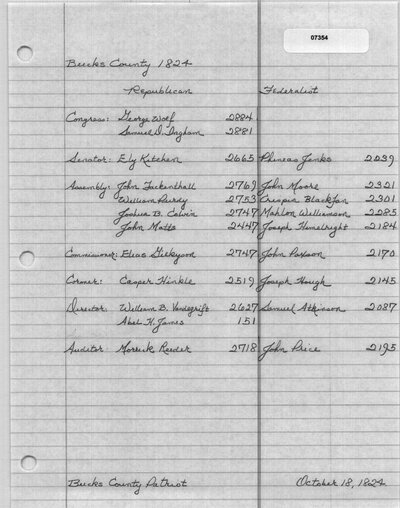 07354
Bucks County 1824
Republican Federalist
Congress: George Wolf 2884
Samuel D. Ingham 2881
Senator: Ely Kitchen 2665 Phineas Jenks 2039
Assembly: John Fackenthall 2769 John Moore 2321
William Purdy 2753 Crispin Blackfan 2301
Joshua B. Calvin 2747 Mahlon Williamson 2285
John Matts 2447 Joseph Hemelright 2184
Commissioner: Elias Gitkyson 2747 John Paxson 2170
Coroner: Casper Hinkle 2519 Joseph Hough 2145
Director: William B. Vandegrift 2627 Samuel Atkinson 2087
Abel H. James 151
Auditor: Merrick Reeder 2718 John Price 2195
Bucks County Patriot October 18, 1824